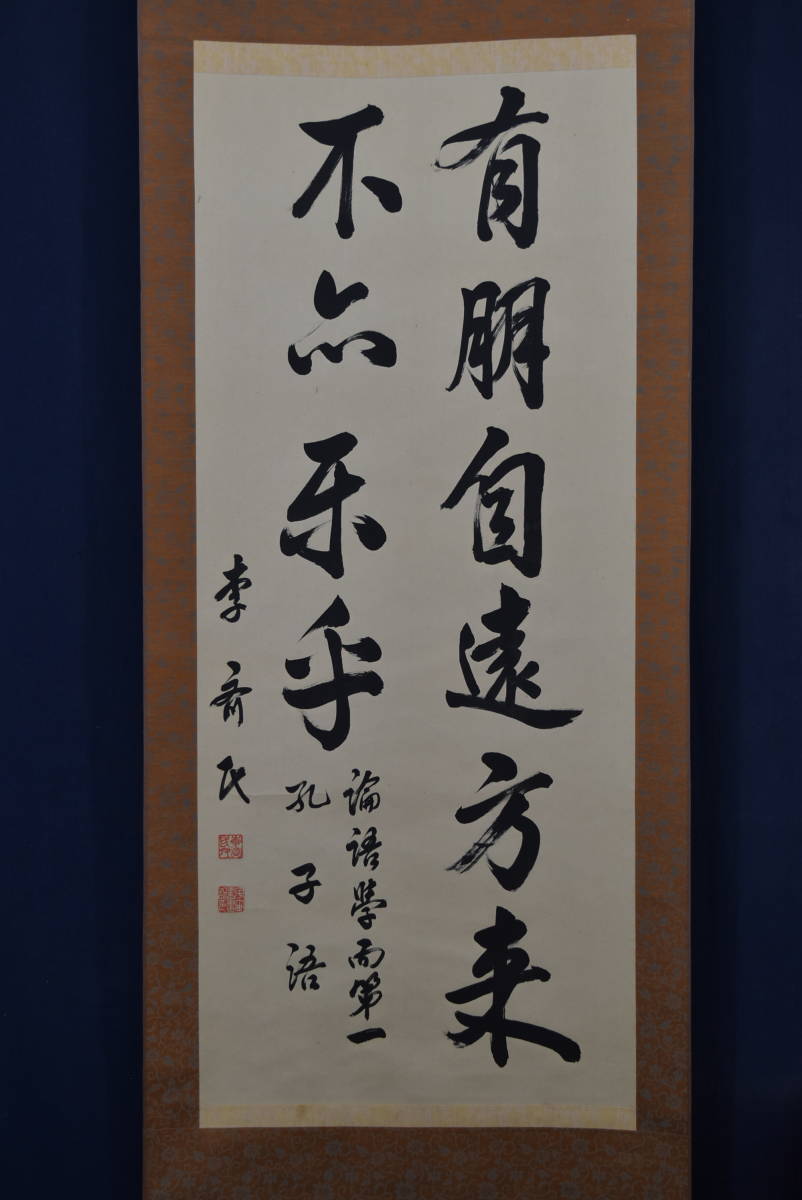 有朋自遠方来
不亦乐乎
論語學而第一
孔子語
李齊民